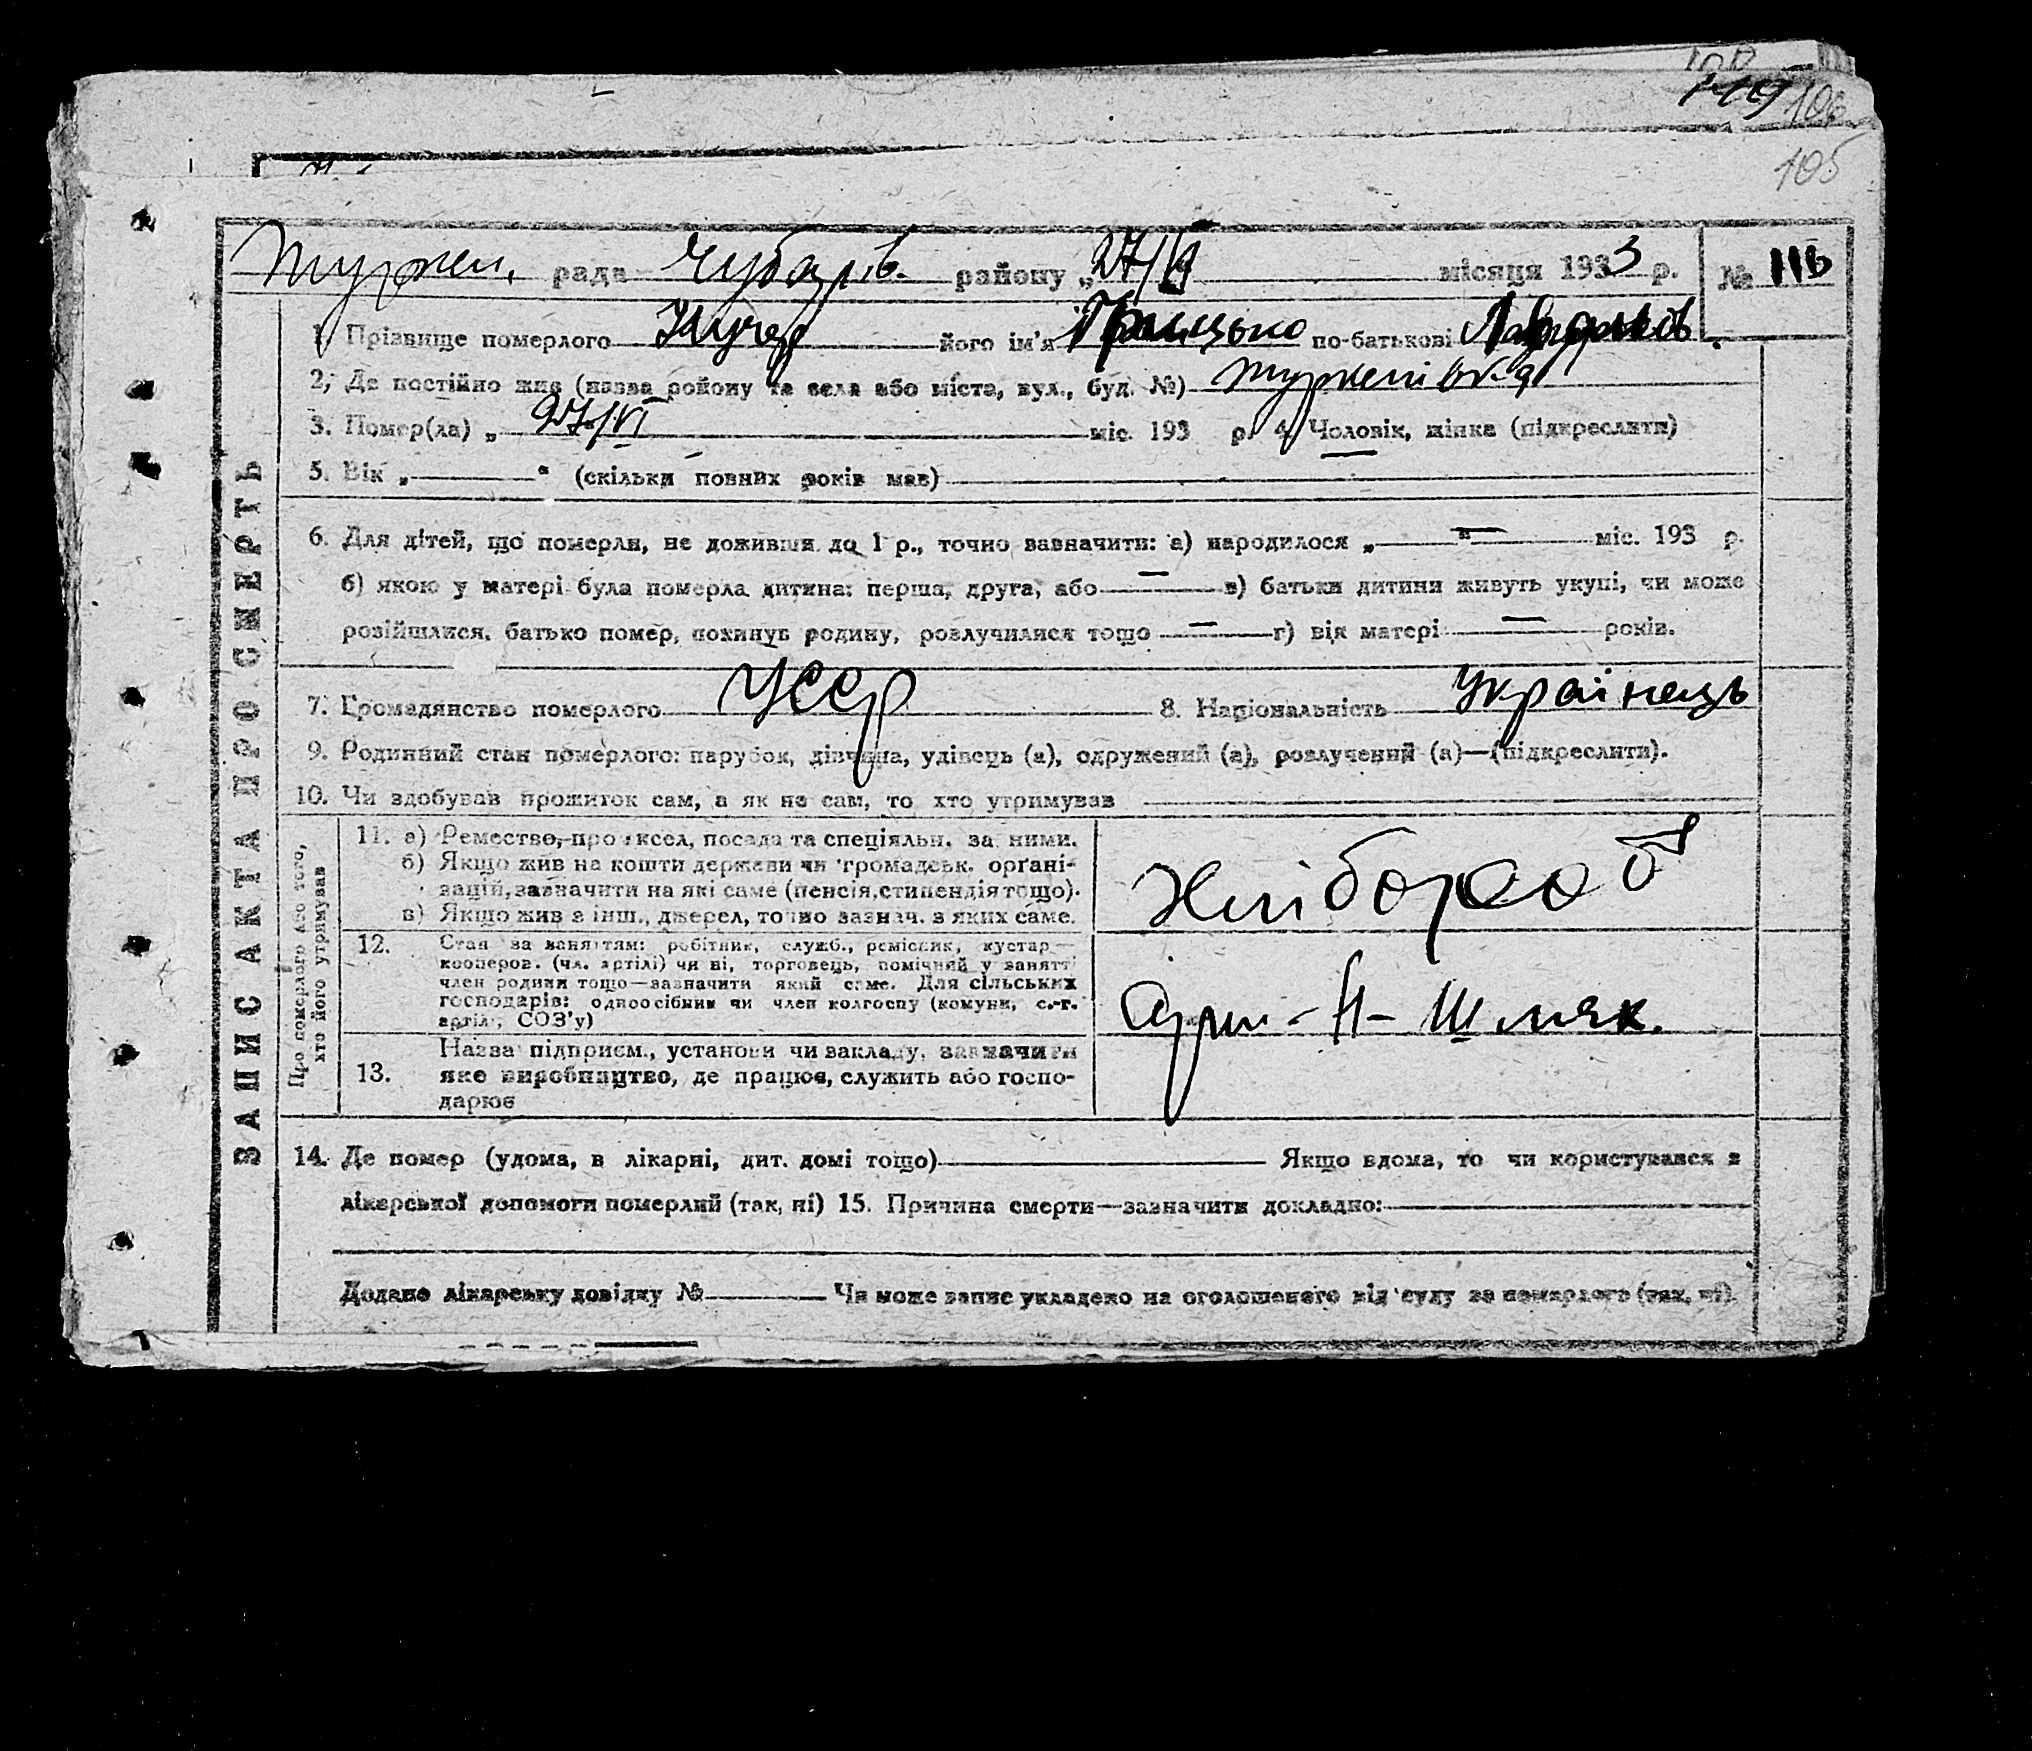 119 106
105
Туркен. рада Чубарів. району „27/VI місяця 1933 р. № 116
1. Прізвище померлого Кучер його ім'я Грицько по-батькові
2. Де постійно жив (назва району та села або міста, вул., буд. №) Туркенівка
3. Помер(ла) „27/VI міс. 193 р. 4. Чоловік, жінка (підкреслити)
5. Вік „ “ (скільки повних років мав)
6. Для дітей, що померли, не доживши до 1 р., точно зазначити: а) народилося „—“ міс. 193 р.
б) якою у матері була померла дитина: перша, друга, або — в) батьки дитини живуть укупі, чи може
розійшлися, батько помер, покинув родину, розлучилися тощо — г) вік матері — років.
7. Громадянство померлого УССР 8. Національність Українець
9. Родинний стан померлого: парубок, дівчина, удівець (а), одружений (а), розлучений (а)—(підкреслити).
10. Чи здобував прожиток сам, а як не сам, то хто утримував
Про померлого або того, хто його утримував
11. а) Ремество, професія, посада та спеціяльн. за ними.
б) Якщо жив на кошти держави чи громадськ. орґані-
зацій, зазначити на які саме (пенсія, стипендія тощо).
в) Якщо жив з інш., джерел, точно зазнач. з яких саме.
Хлібороб
12. Стан за заняттям: робітник, служб., ремісник, кустар—
кооперов. (чл. артілі) чи ні, торговець, помічний у занятті
член родини тощо—зазначити який саме. Для сільських
господарів: одноосібник чи член колгоспу (комуни, с.-г.
артілі, СОЗ'у)
13. Назва підприєм., установи чи закладу, зазначити
яке виробництво, де працює, служить або госпо-
дарює
14. Де помер (удома, в лікарні, дит. домі тощо) Якщо вдома, то чи користувався з
лікарської допомоги померлий (так, ні) 15. Причина смерти—зазначити докладно:
Додано лікарську довідку № Чи може запис укладено на оголошеного від суду за померлого (так, ні).
ЗАПИС АКТА ПРО СМЕРТЬ